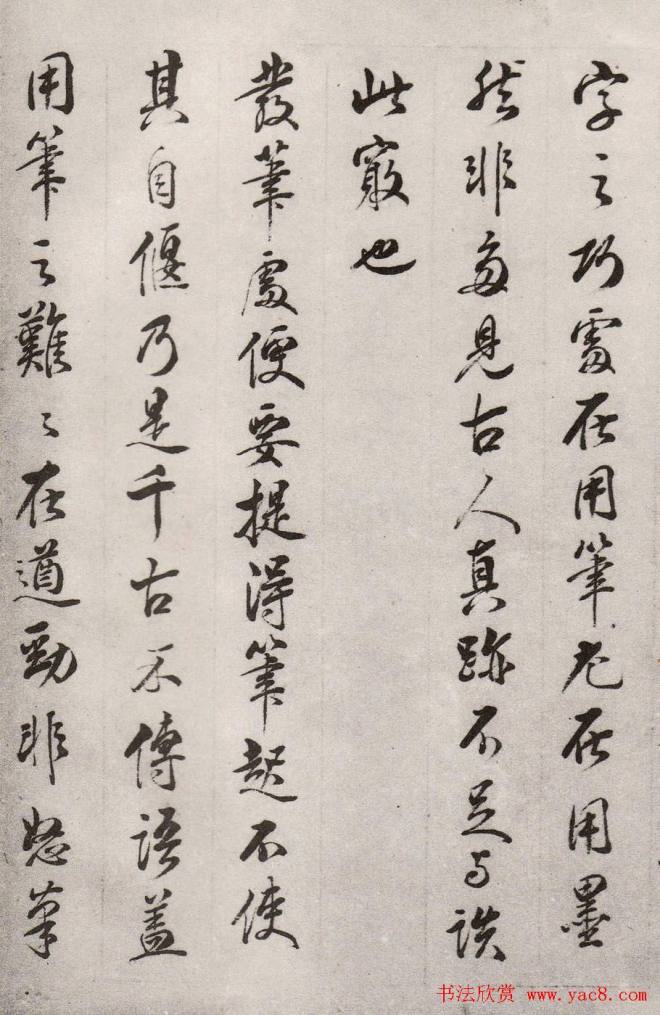 字之巧處在用筆尤在用墨
然非多見古人真跡不足與談
此竅也
發筆處便要提得筆起不使
其自偃乃是千古不傳語蓋
用筆之難〻在遒勁非怒筆
书法欣赏 www.yac8.com